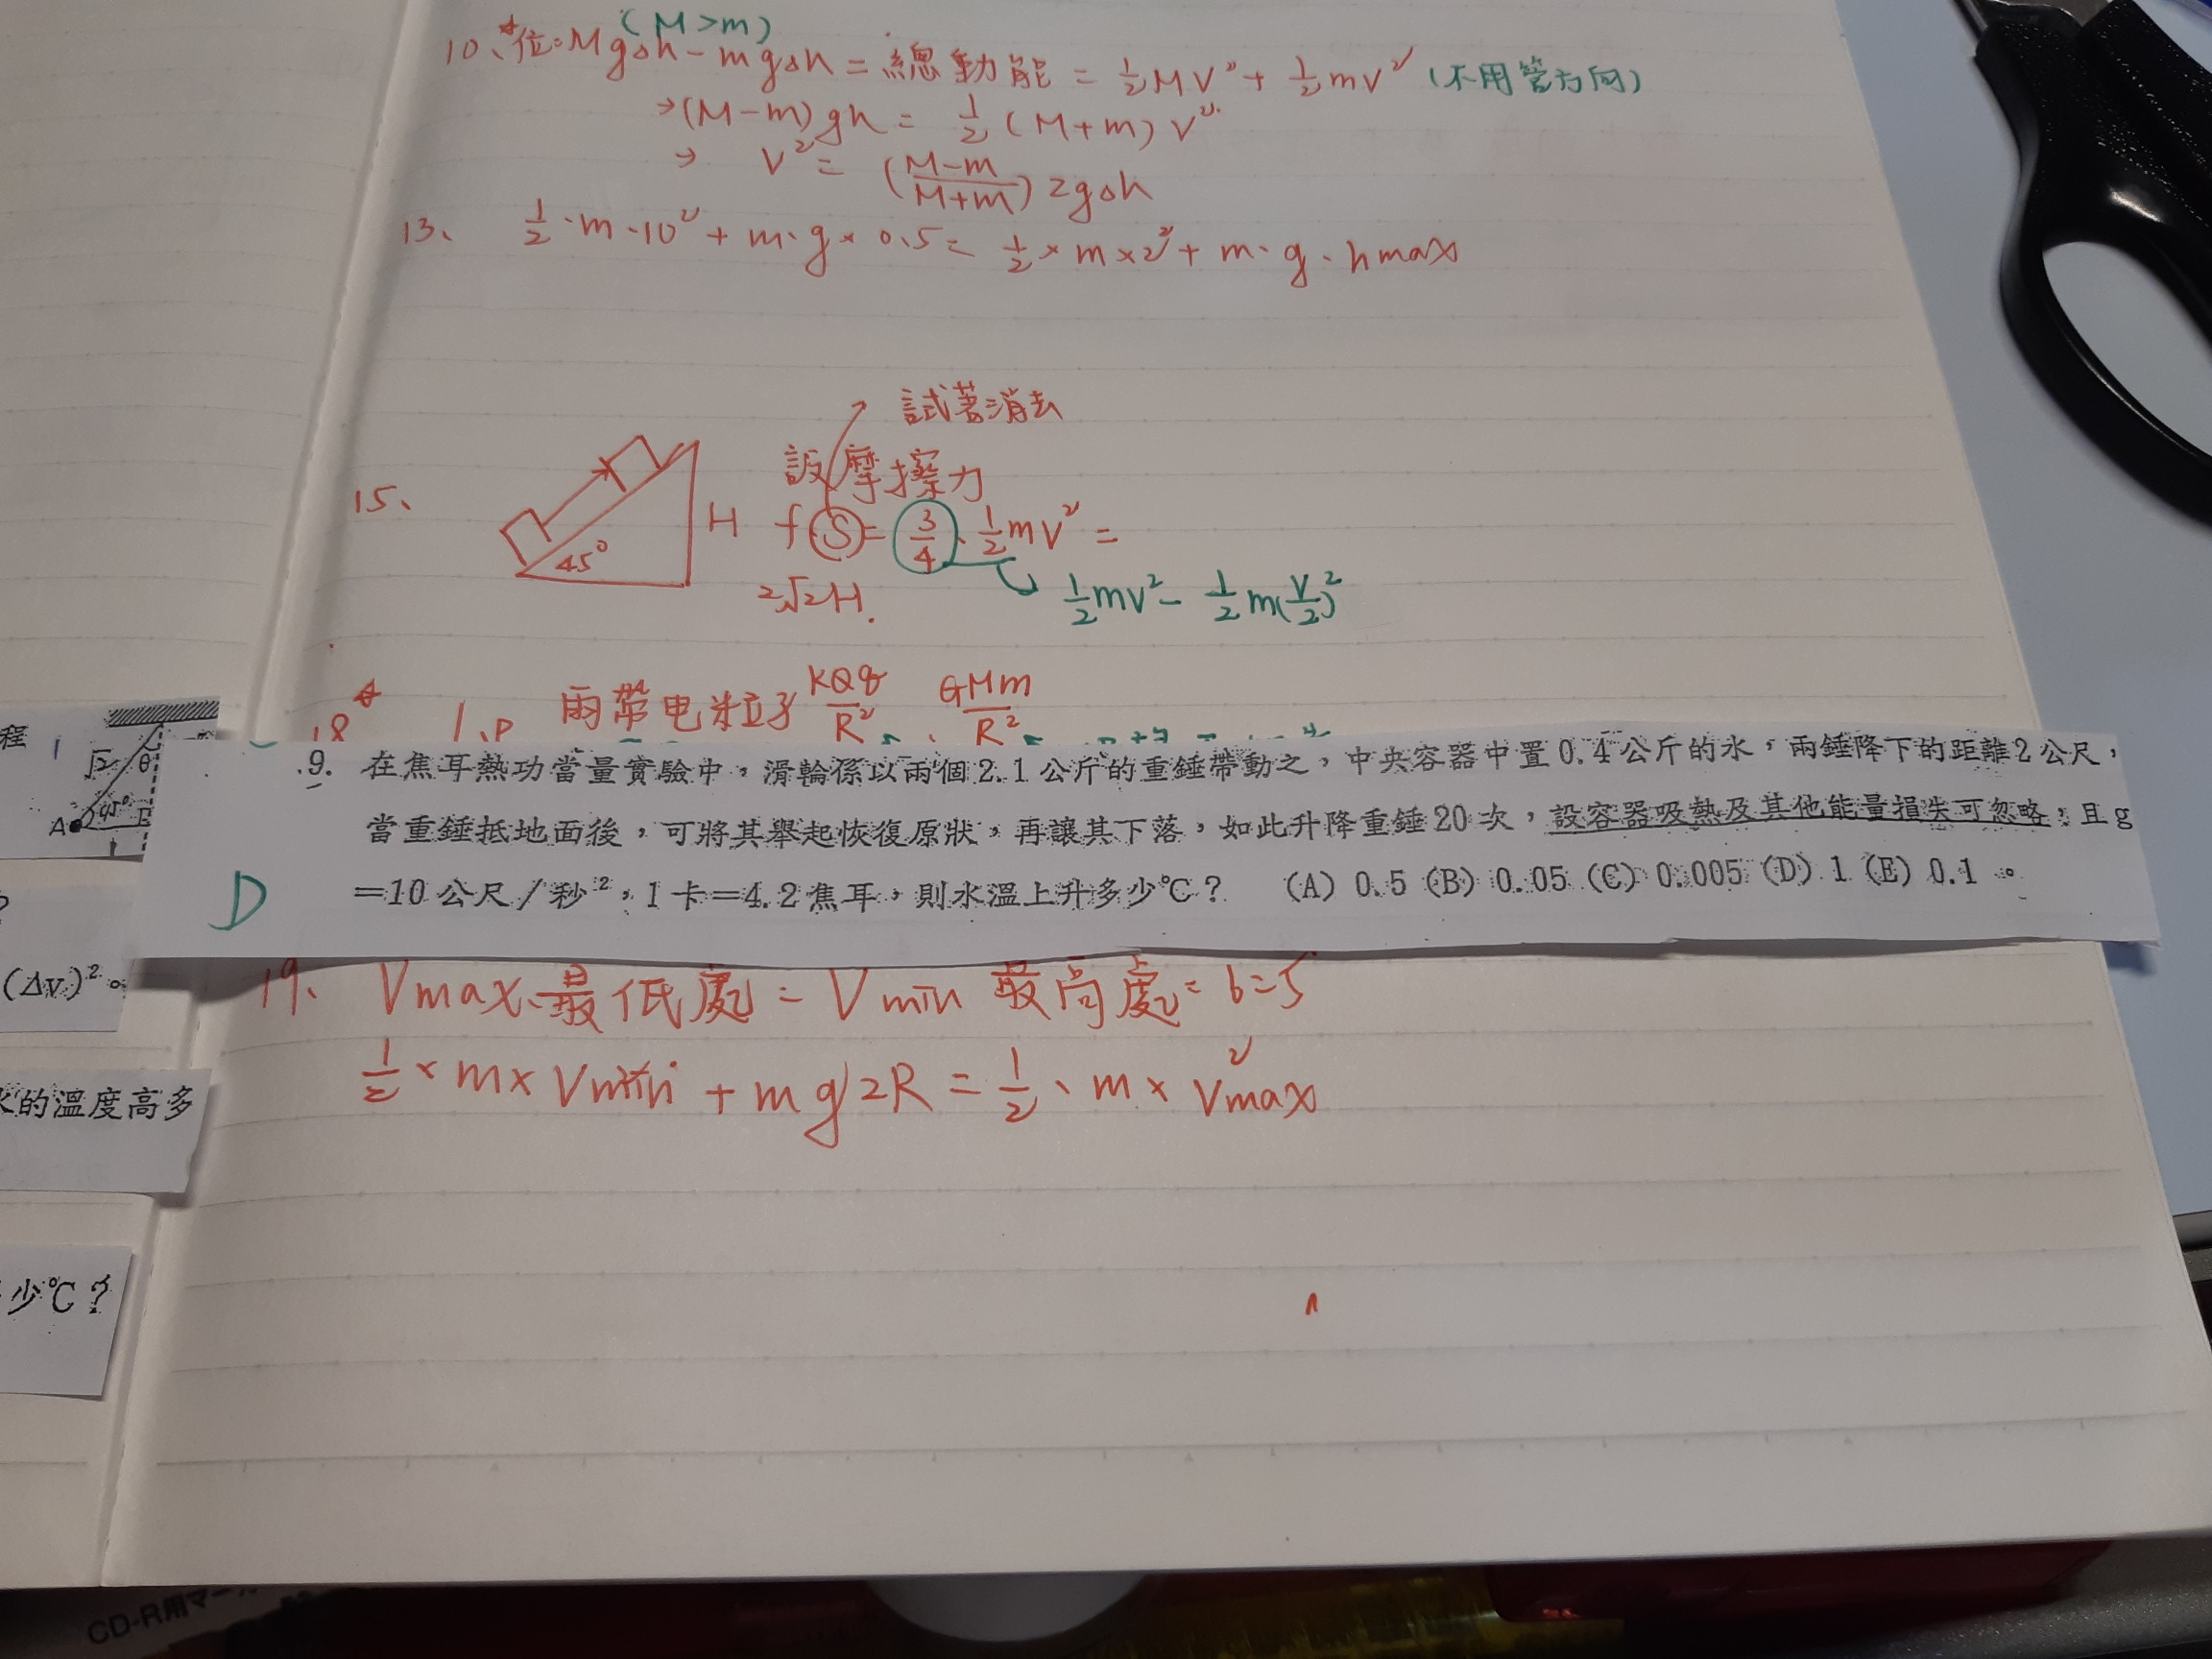 (M>m)
10、位:MgΔh-mgΔh=總動能=½MV²+½mV²(不用管方向)
→(M-m)gh=½(M+m)V²
→ V²=(M-m/M+m)2gΔh
13、 ½·m·10²+m·g×0.5=½×m×2²+m·g·hmax
試著消去
設摩擦力
15、 45° H fS=¾·½mV²=
2√2H. ½mV²-½m(V/2)²
18 兩帶电粒子 KQq/R² GMm/R²
程
√2 θ
A 45°
9. 在焦耳熱功當量實驗中，滑輪係以兩個2.1公斤的重錘帶動之，中央容器中置0.4公斤的水，兩錘降下的距離2公尺，
當重錘抵地面後，可將其舉起恢復原狀，再讓其下落，如此升降重錘20次，設容器吸熱及其他能量損失可忽略，且g
=10公尺/秒²，1卡=4.2焦耳，則水溫上升多少℃? (A) 0.5 (B) 0.05 (C) 0.005 (D) 1 (E) 0.1。
D
?
(Δv)²。
19、 Vmax、最低處=Vmin 最高處=6=5
½×m×Vmin²+mg2R=½、m×Vmax²
的溫度高多
少℃?
CD-R用マー